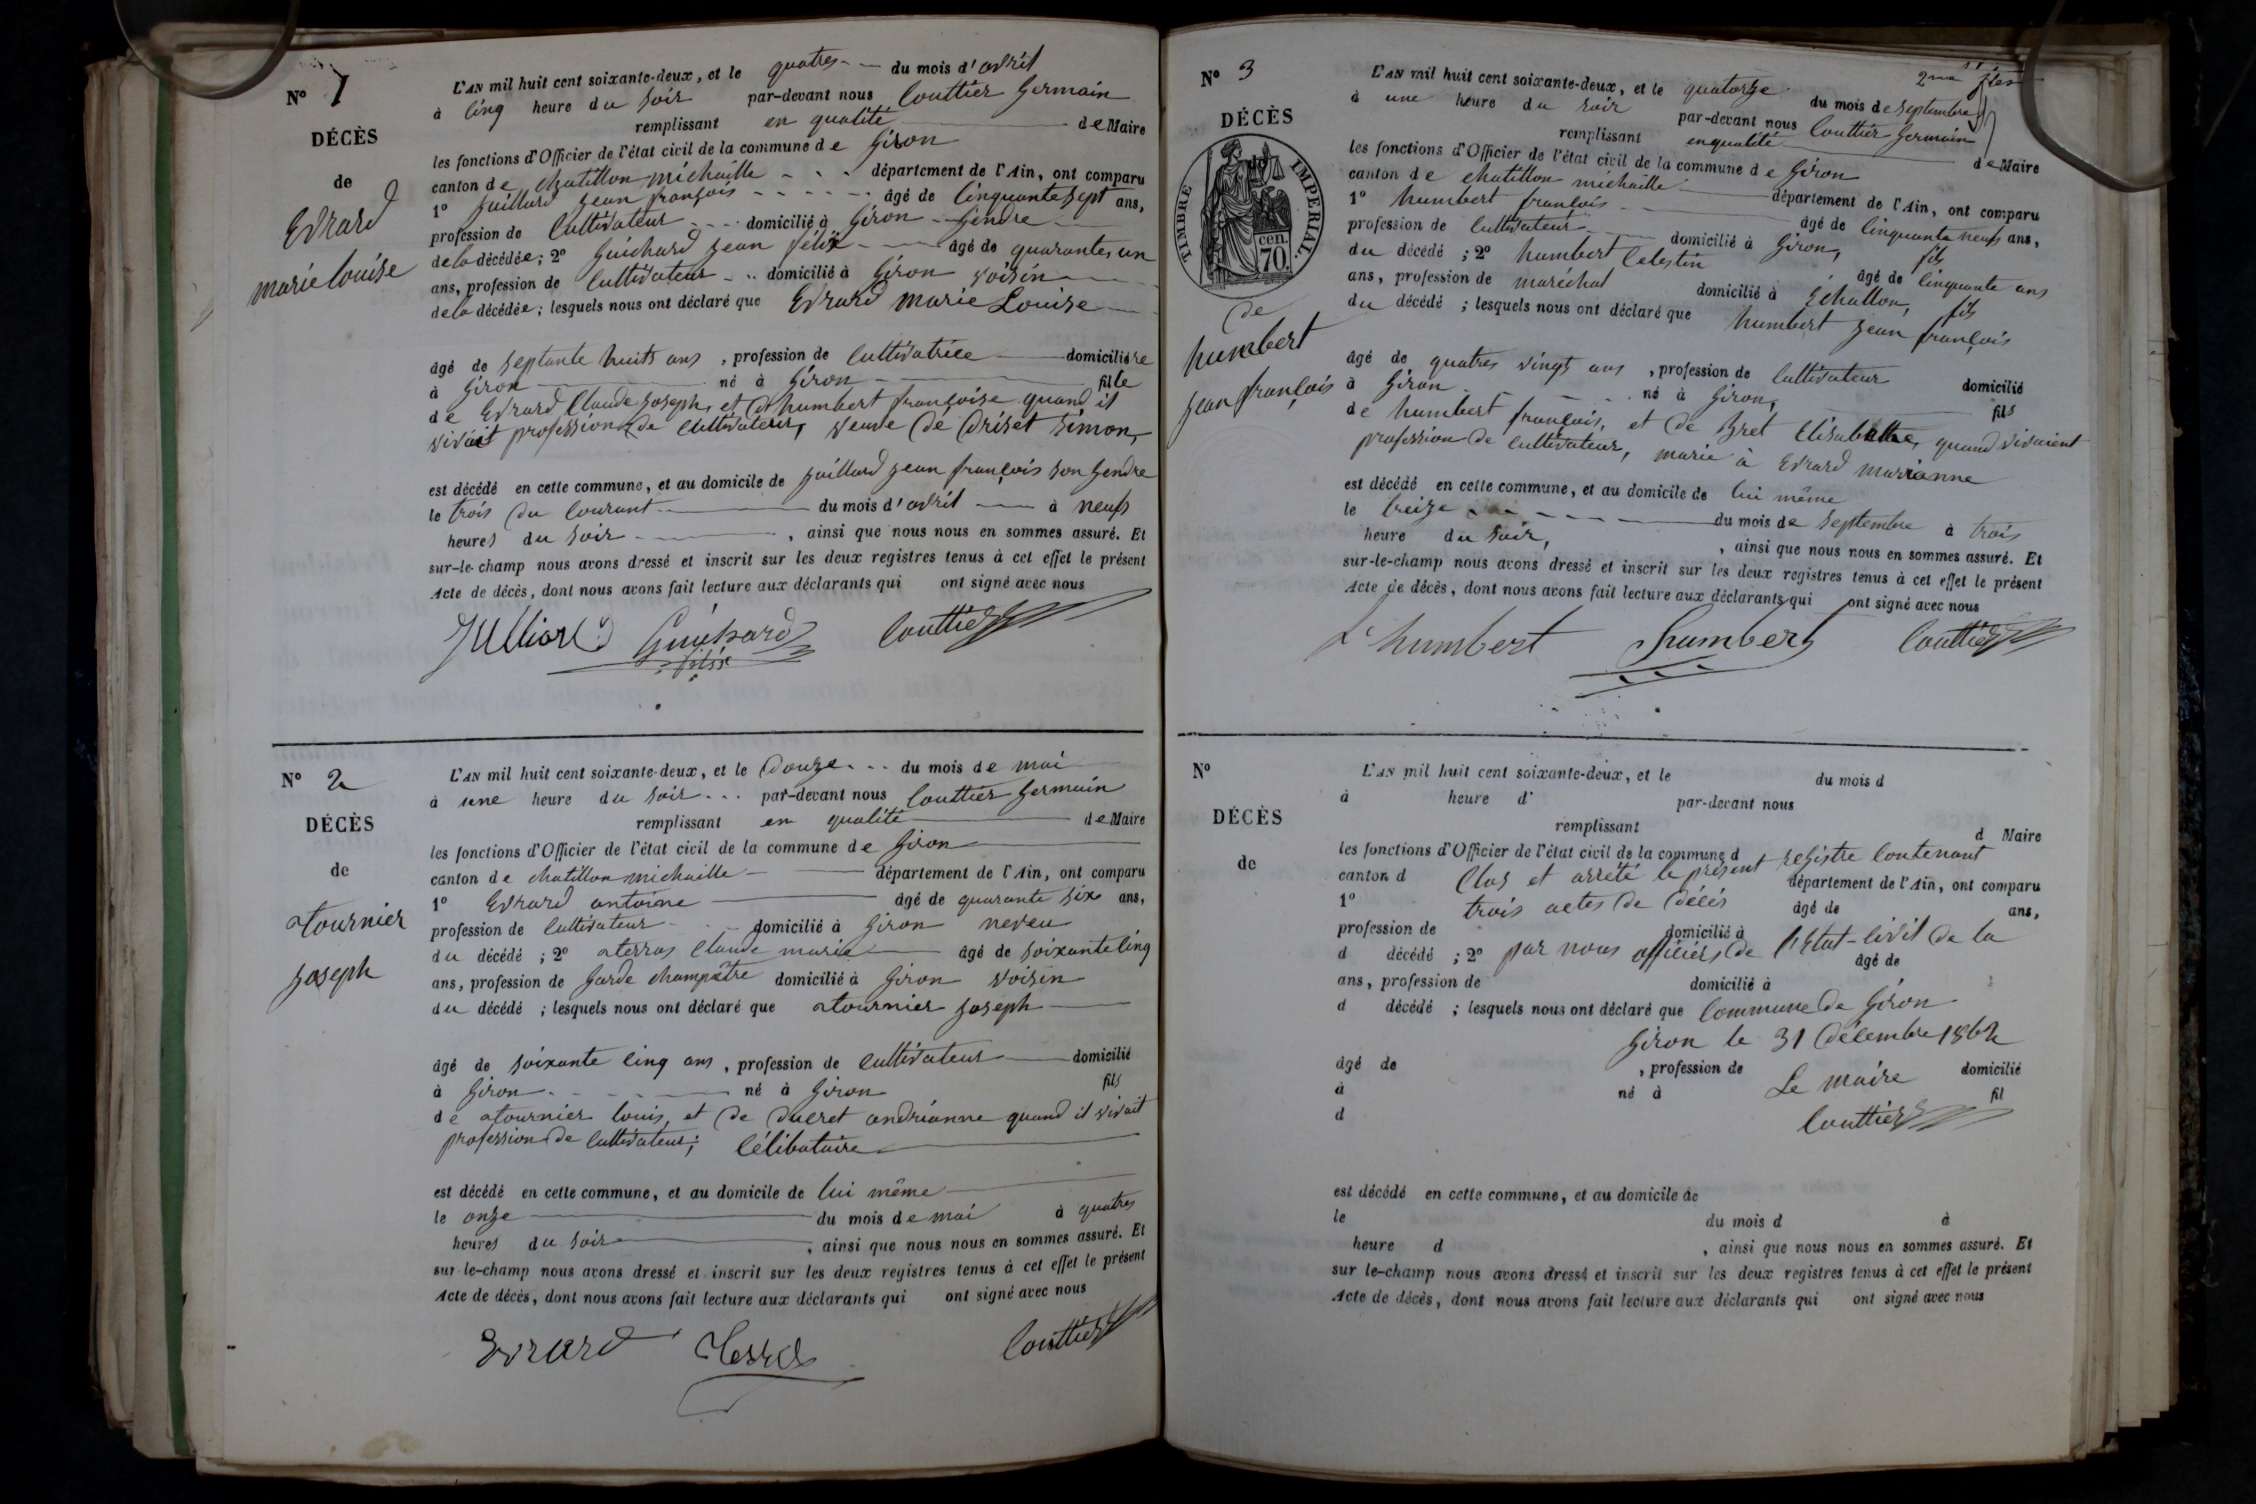 N° 1
DÉCÈS
de
Evrard
marie louise
L'AN mil huit cent soixante-deux, et le quatres du mois d'avril
à cinq heure du soir par-devant nous Couttier Germain
remplissant en qualité de Maire
les fonctions d'Officier de l'état civil de la commune de Giron
canton de chatillon michaille département de l'Ain, ont comparu
1° Juillard Jean françois âgé de cinquante sept ans,
profession de Cultivateur domicilié à Giron Gendre
dela décédée; 2° Guichard Jean félix âgé de quarantes un
ans, profession de Cultivateur domicilié à Giron voisin
dela décédée; lesquels nous ont déclaré que Evrard marie Louise
âgé de septante huits ans, profession de Cultivatrice domiciliére
à Giron né à Giron fille
de Evrard Claude Joseph, et de humbert françoise quand il
vivait profession de Cultivateur, veuve de Driset Simon,
est décédé en cette commune, et au domicile de Juillard Jean françois son Gendre
le trois du Courant du mois d'avril à neufs
heures du soir, ainsi que nous nous en sommes assuré. Et
sur-le-champ nous avons dressé et inscrit sur les deux registres tenus à cet effet le présent
Acte de décès, dont nous avons fait lecture aux déclarants qui ont signé avec nous
Guichard Couttier
félix
N° 2
DÉCÈS
de
tournier
Joseph
L'AN mil huit cent soixante-deux, et le Douze du mois de mai
à une heure du soir par-devant nous Couttier Germain
remplissant en qualité de Maire
les fonctions d'Officier de l'état civil de la commune de Giron
canton de chatillon michaille département de l'Ain, ont comparu
1° Evrard antoine âgé de quarante six ans,
profession de Cultivateur domicilié à Giron neveu
du décédé; 2° terras Claude marie âgé de soixante cinq
ans, profession de Garde champêtre domicilié à Giron voisin
du décédé; lesquels nous ont déclaré que tournier Joseph
âgé de soixante cinq ans, profession de Cultivateur domicilié
à Giron né à Giron fils
de tournier louis, et de Ducret andrianne quand il vivait
profession de Cultivateur; Célibataire
est décédé en cette commune, et au domicile de lui même
le onze du mois de mai à quatres
heures du soir, ainsi que nous nous en sommes assuré. Et
sur-le-champ nous avons dressé et inscrit sur les deux registres tenus à cet effet le présent
Acte de décès, dont nous avons fait lecture aux déclarants qui ont signé avec nous
Evrard Couttier
N° 3
DÉCÈS
TIMBRE IMPÉRIAL.
70 cen.
de
humbert
Jean françois
L'AN mil huit cent soixante-deux, et le quatorze du mois de septembre
à une heure du soir par-devant nous Couttier Germain
remplissant en qualité de Maire
les fonctions d'Officier de l'état civil de la commune de Giron
canton de chatillon michaille département de l'Ain, ont comparu
1° humbert françois âgé de cinquante neufs ans,
profession de Cultivateur domicilié à Giron, fils
du décédé; 2° humbert Celestin âgé de cinquante ans
ans, profession de maréchal domicilié à Echallon, fils
du décédé; lesquels nous ont déclaré que humbert Jean françois
âgé de quatres vingt ans, profession de Cultivateur domicilié
à Giron né à Giron, fils
de humbert françois, et de Bret Elisabethe, quand vivaient
profession de Cultivateur, marié à Evrard marianne
est décédé en cette commune, et au domicile de lui même
le treize du mois de septembre à trois
heure du soir, ainsi que nous nous en sommes assuré. Et
sur-le-champ nous avons dressé et inscrit sur les deux registres tenus à cet effet le présent
Acte de décès, dont nous avons fait lecture aux déclarants qui ont signé avec nous
humbert humbert Couttier
N°
DÉCÈS
de
L'AN mil huit cent soixante-deux, et le du mois d
à heure d' par-devant nous
remplissant d Maire
les fonctions d'Officier de l'état civil de la commune d
Clos et arrêté le présent registre Contenant
canton d département de l'Ain, ont comparu
1° trois actes de décés âgé de ans,
profession de domicilié à
d décédé; 2° par nous officiers de l'Etat-Civil de la
âgé de
ans, profession de domicilié à
d décédé; lesquels nous ont déclaré que Commune de Giron
Giron le 31 Décembre 1862
âgé de , profession de domicilié
Le maire
à né à fil
d Couttier
est décédé en cette commune, et au domicile de
le du mois d à
heure d , ainsi que nous nous en sommes assuré. Et
sur le-champ nous avons dressé et inscrit sur les deux registres tenus à cet effet le présent
Acte de décès, dont nous avons fait lecture aux déclarants qui ont signé avec nous